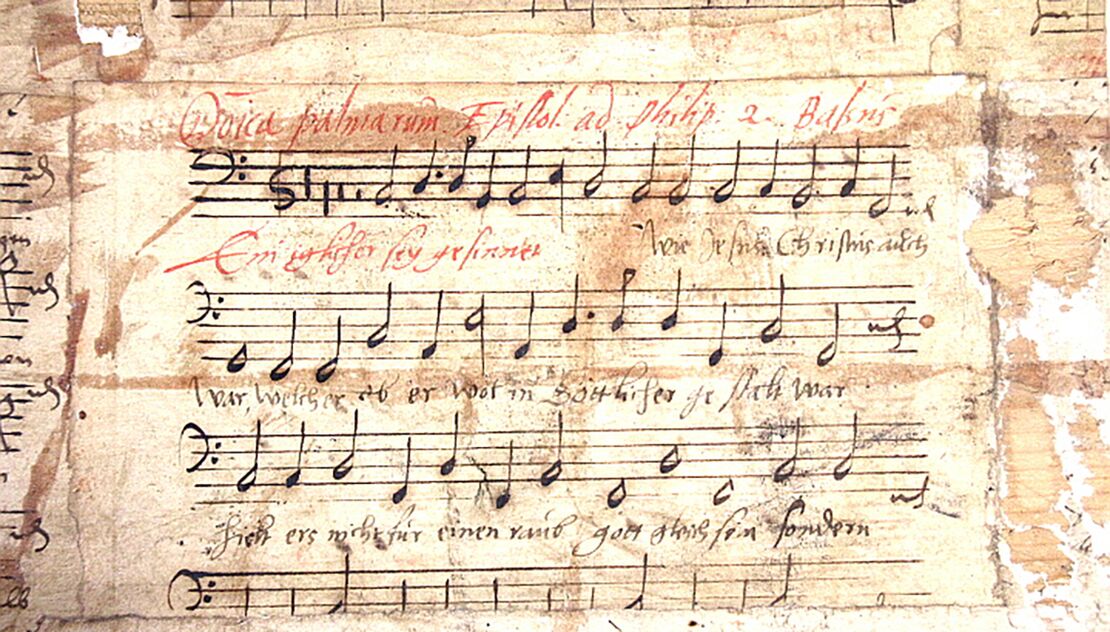 Dōica palmarum Epistol. ad Philip. 2. Baſsus
Ein iglicher sey gesinnet wie Jesus Christus auch
War, welcher ob er wol in Gottlicher ge stalt war
hielt ers nicht für einen raub gott gleich sein sondern